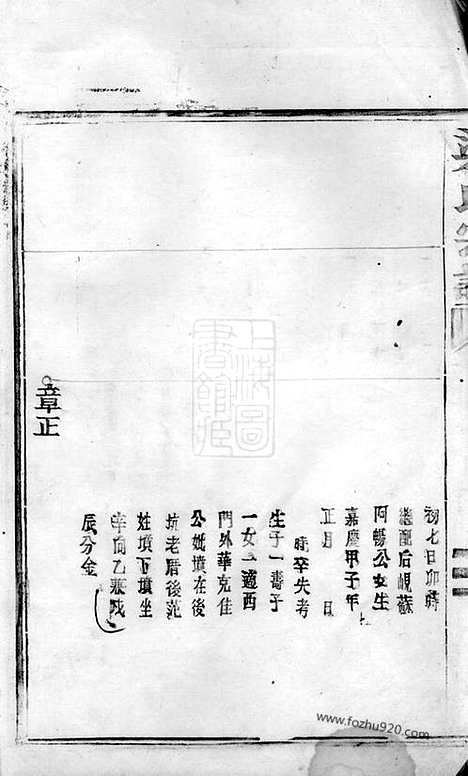 初七日卯時
繼配后峴蘇
阿暢公女生
嘉慶甲子年
正月 日
時卒失考
生子一壽子
一女一適西
門外華克佳
公妣墳在後
坑老厝後范
姓墳下墳坐
辛向乙兼戌
辰分金
章正
上海圖
書館藏
www.fozhu920.com